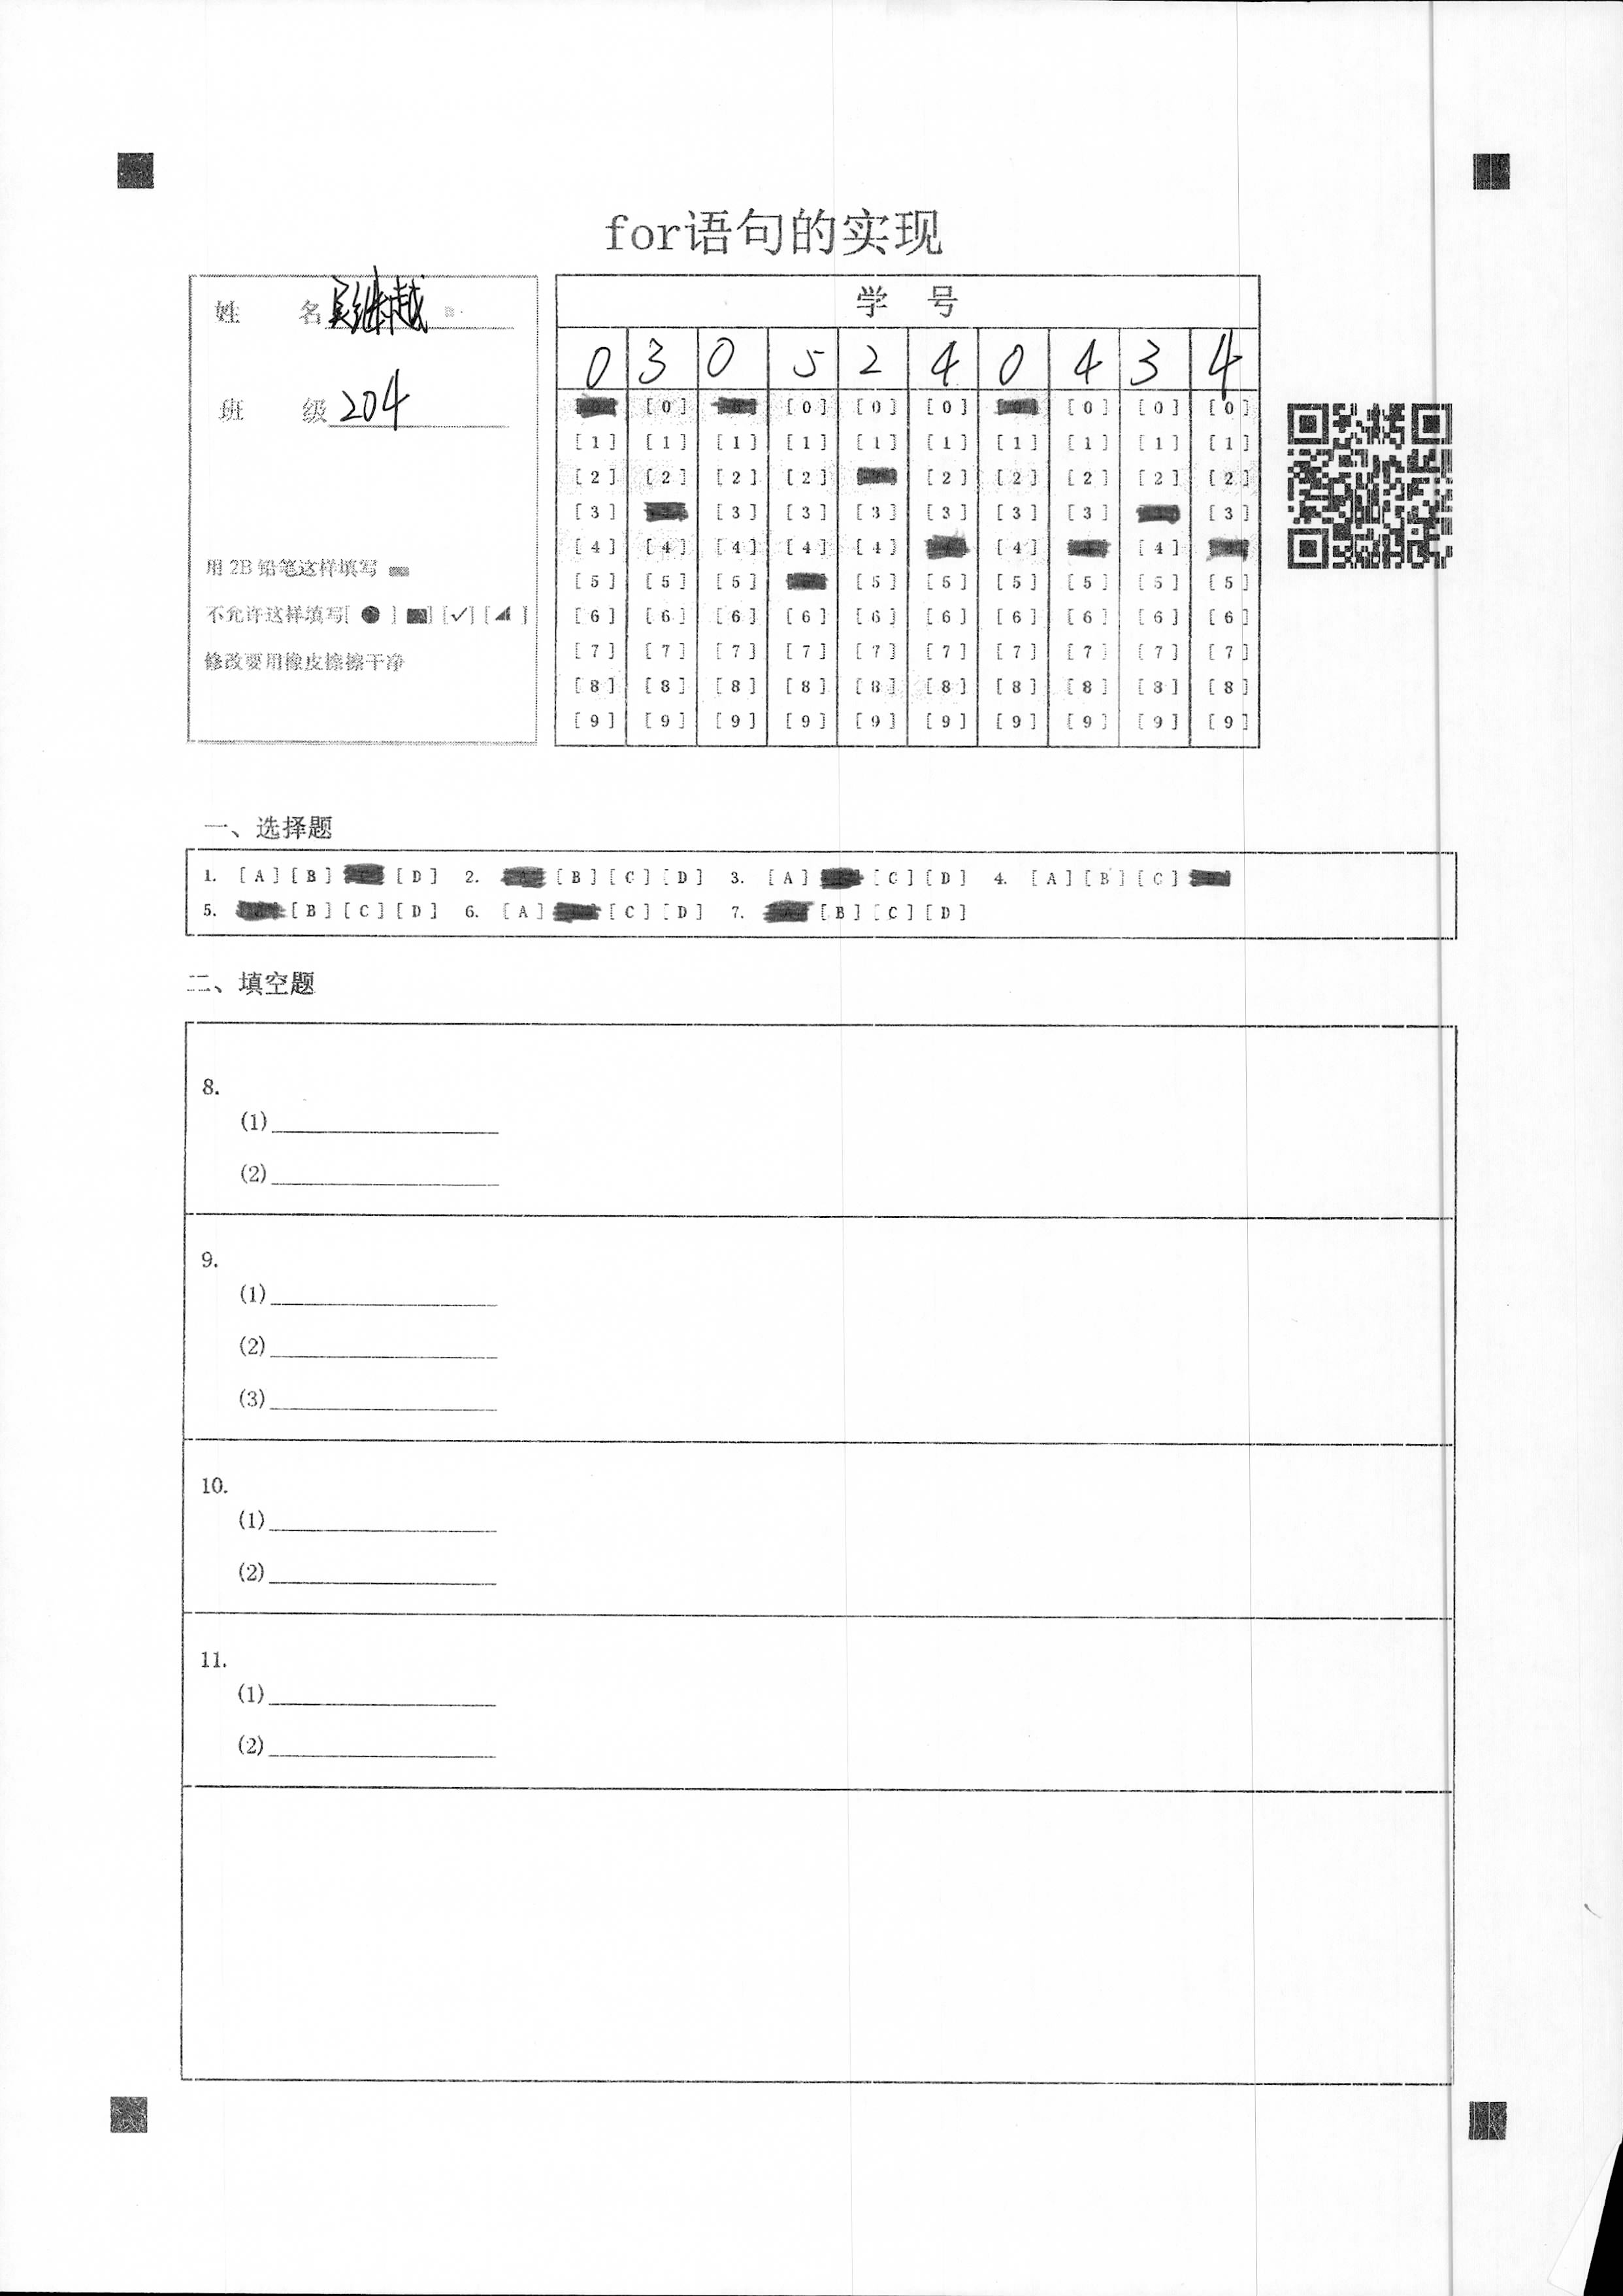 for语句的实现
姓 名 吴继越
班 级 204
用 2B 铅笔这样填写
不允许这样填写[ ● ] [■] [✓] [◢ ]
修改要用橡皮擦擦干净
学 号
0 3 0 5 2 4 0 4 3 4
[0] [0] [0] [0] [0] [0] [0]
[1] [1] [1] [1] [1] [1] [1] [1] [1] [1]
[2] [2] [2] [2] [2] [2] [2] [2] [2]
[3] [3] [3] [3] [3] [3] [3] [3]
[4] [4] [4] [4] [4] [4] [4]
[5] [5] [5] [5] [5] [5] [5] [5] [5]
[6] [6] [6] [6] [6] [6] [6] [6] [6] [6]
[7] [7] [7] [7] [7] [7] [7] [7] [7] [7]
[8] [8] [8] [8] [8] [8] [8] [8] [8] [8]
[9] [9] [9] [9] [9] [9] [9] [9] [9] [9]
一、选择题
1. [A] [B] [D] 2. [B] [C] [D] 3. [A] [C] [D] 4. [A] [B] [C]
5. [B] [C] [D] 6. [A] [C] [D] 7. [B] [C] [D]
二、填空题
8.
(1)
(2)
9.
(1)
(2)
(3)
10.
(1)
(2)
11.
(1)
(2)